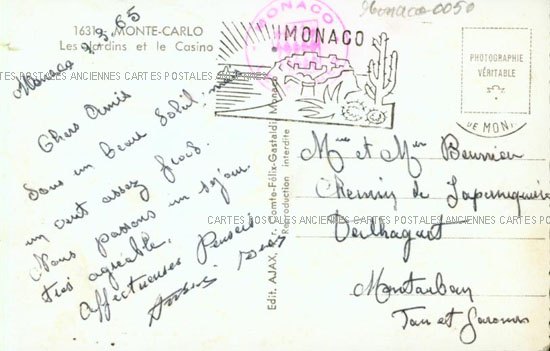 16319. MONTE-CARLO
Les Jardins et le Casino
Monaco 7.3.65
Chers Amis
Sous un beau Soleil mais
un vent assez frais.
Nous passons un séjour
très agréable.
Affectueuses Pensées
Edit. AJAX, Pr. Comte-Félix-Gastaldi, Monaco
Reproduction interdite
MONACO
MONACO
Monaco 0050
PHOTOGRAPHIE
VÉRITABLE
DE MON
Mme et Mr
Chemin de
Verlhaguet
Montauban
Tarn et Garonne
CARTES POSTALES ANCIENNES CARTES POSTALES ANCIENNES CARTES POSTALES ANCIENNES
CARTES POSTALES ANCIENNES CARTES POSTALES ANCIENNES